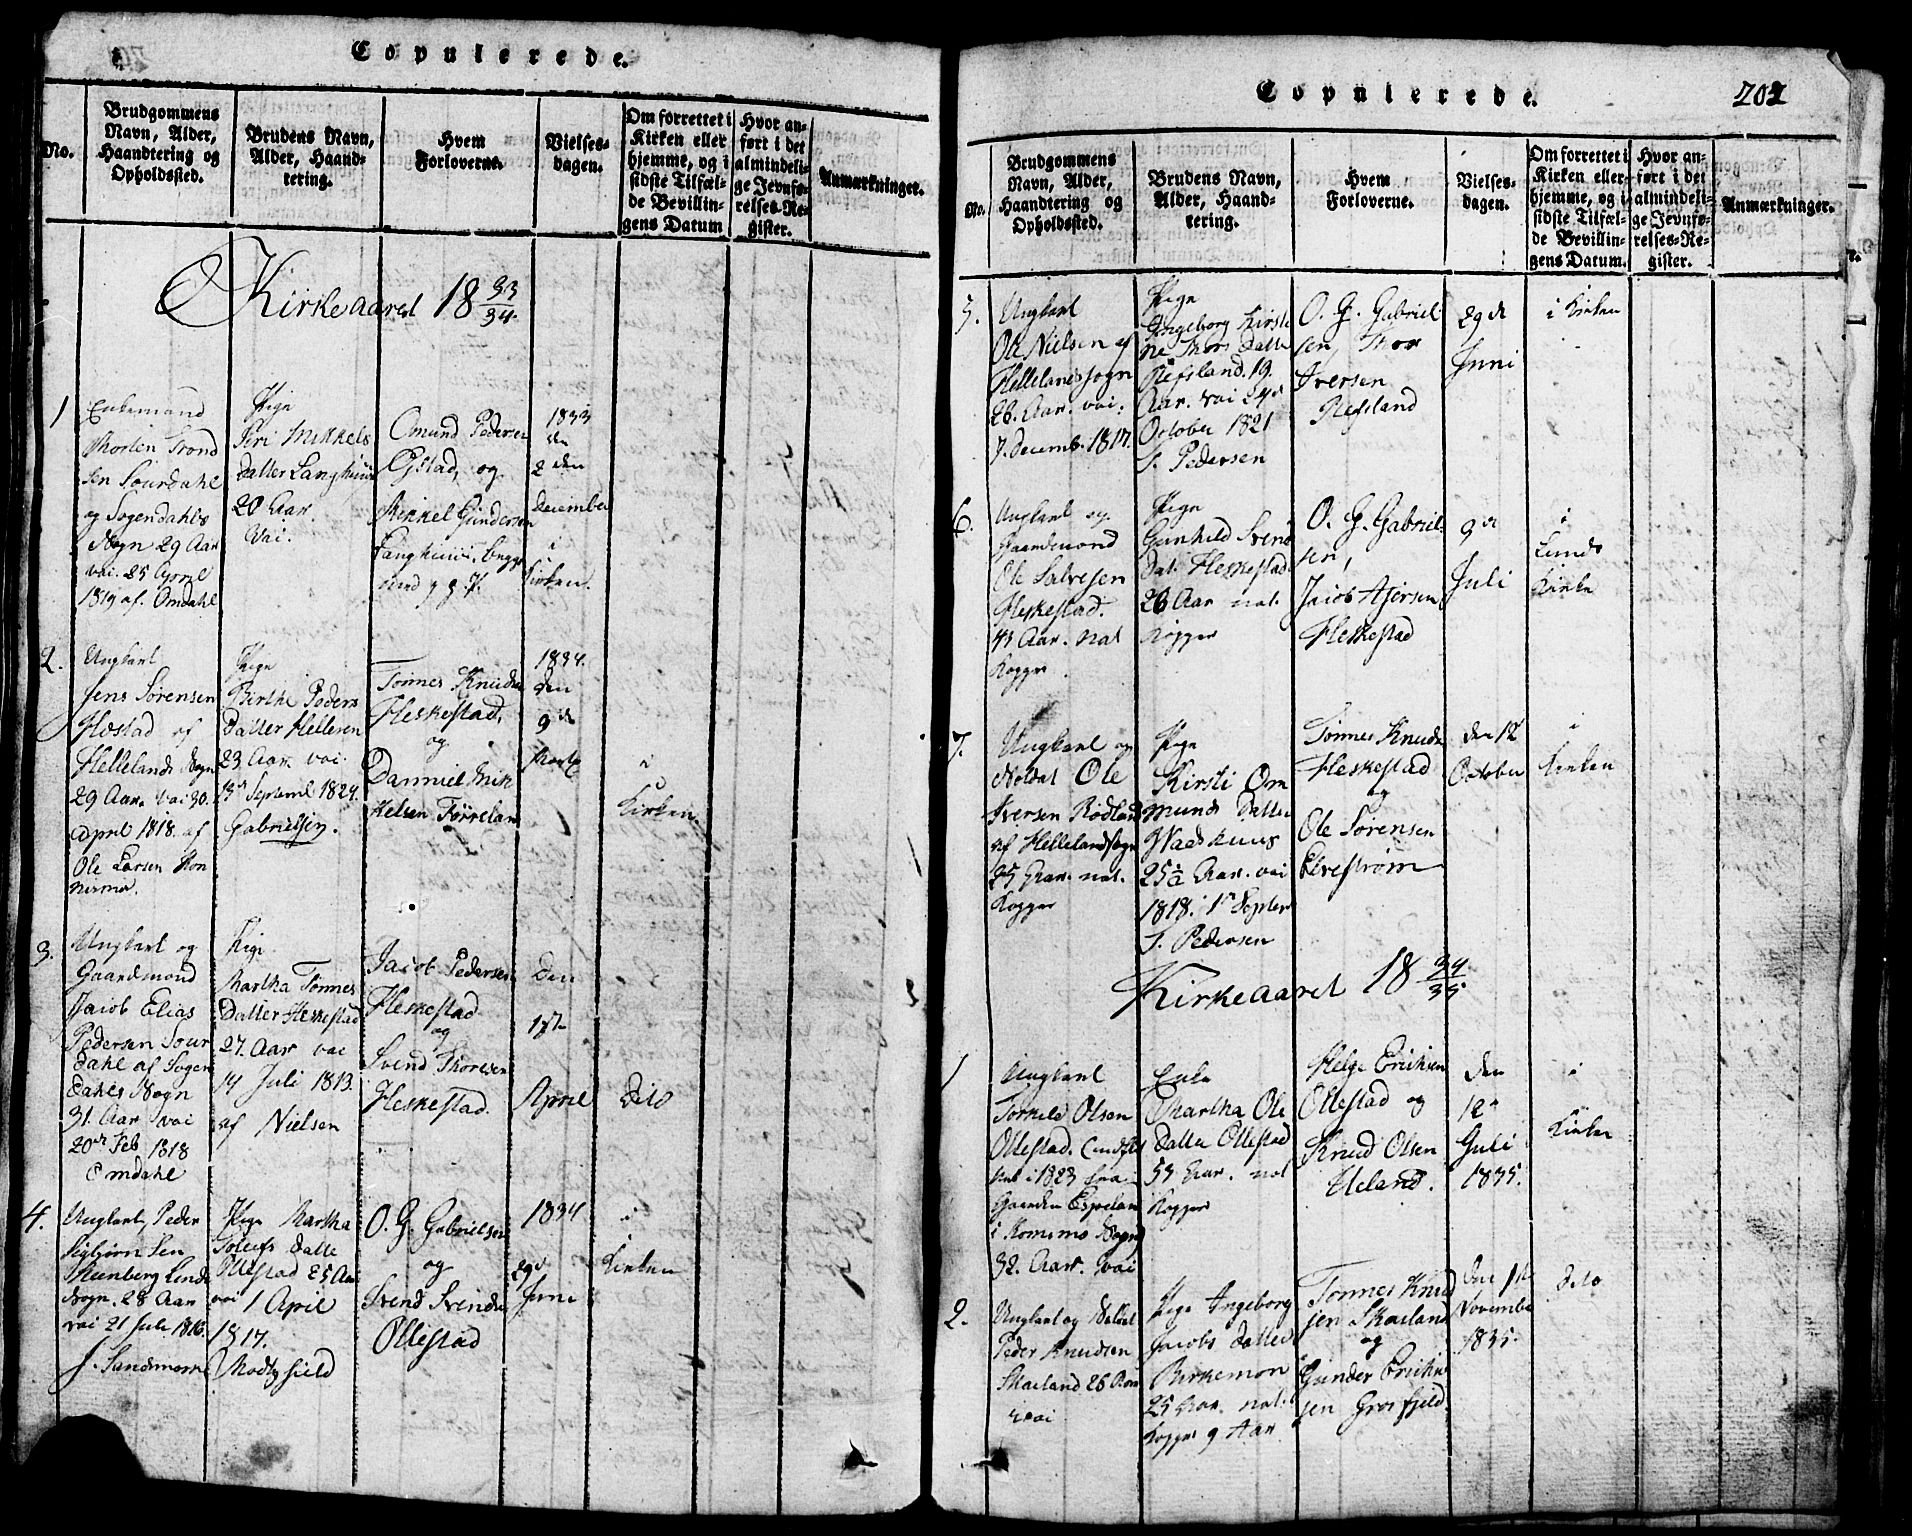 Copulerede.
No.
Brudgommens
Navn, Alder,
Haandtering og
Opholdssted.
Brudens Navn,
Alder, Haand-
tering.
Hvem
Forloverne.
Vielses-
dagen.
Om forrettet i
Kirken eller
hjemme, og i
sidste Tilfæl-
de Bevillin-
gens Datum
Hvor an-
ført i det
almindeli-
ge Jevnfø-
relses-Re-
gister.
Anmærkninger.
Kirkeaaret 18 33/34.
1
Enkemand
Morten Trond
sen Sourdahl
og Sogendahls
Sogn 29 Aar
vai. 25 April
1819 af. Omdahl
Pige
Siri Mikkels
Datter Langhuus
20 Aar.
Vai.
Omund Pedersen
Eystad, og
Mikkel Gundersen
Langhuus, begge
1833
den
2 den
December
i
Kirken.
2.
Ungkarl
Jens Sørensen
Hostad af
Hellelands Sogn
29 Aar. vai 30.
April 1818. af
Ole Larsen
Pige
Birthe Peders
Datter Helleren
23 Aar vai.
Septeml 1824.
Gabrielsen.
Tønnes Knudsen
Heskestad,
og
Danniel Mik
kelsen Førreland
1834.
den
9de
Martz
i
Kirken
3.
Ungkarl og
Gaardmand
Jacob Elias
Pedersen Sour
dahl af Sogen
dahls Sogn
31. Aar vai
20de Feb 1818
Omdahl
Pige
Martha Tønnes
Datter Heskestad
27. Aar vai
14 Juli 1813.
af Nielsen
Jacob Pedersen
Heskestad
og
Svend Thoresen
Heskestad.
Den
1ste
April
Dito
4.
Ungkarl, Peder
Sigbjørn Sen
Steenberg Lunds
Sogn. 28 Aar
vai 21 Juli 1816.
Pige Martha
Tolleifs Datte
Ollestad 25 Aar
vai 1 April
1817.
Modtzfield
O. G. Gabrielsen
og
Svend Svendsen
Ollestad
1834
29de
Juni
i
Kirken
Copulerede.
202
No.
Brudgommens
Navn, Alder,
Haandtering og
Opholdssted.
Brudens Navn,
Alder, Haand-
tering.
Hvem
Forloverne.
Vielses-
dagen.
Om forrettet i
Kirken eller
hjemme, og i
sidste Tilfæl-
de Bevillin-
gens Datum.
Hvor an-
ført i det
almindeli-
ge Jevnfø-
relses-Re-
gister.
Anmærkninger.
5.
Ungkarl
Ole Nielsen af
Hellelands sogn
26. Aar. vai.
7. Decemb. 1817.
Pige
Ingeborg Kirsti
ne Thors Datte
Refsland. 19.
Aar. vai 24de
October 1821
S. Pedersen
O. G. Gabriel
sen, Thor
Iversen
Refsland
29de
Juni
i Kirken
6.
Ungkarl og
Gaardmand
Ole Salvesen
Heskestad.
43 Aar. nat
Kopper
Pige
Gunhild Svens
Dat. Heskestad
26 Aar nat.
Kopper
O. G. Gabriel
sen,
Jacob Ajersen
Heskestad
9de
Juli
i
Lunds
Kirke
7.
Ungkarl og
Soldat Ole
Iversen Rødland
af Hellelandsogn
25 Aar. nat.
Kopper
Pige
Kirsti Om
munds Datter
Wadshuus
25 1/2 Aar. vai
1818. 1de Septer
S. Pedersen
Tønnes Knuds
Heskestad
og
Ole Sørensen
Elvestrøm
den 12
October
i
Kirken
Kirkeaaret 18 34/35
1
Ungkarl
Torkild Olsen
Ollestad.
1823 fra
Gaarden Espeland
i Sogn
32. Aar. vai
Enke
Martha Ole
Datte Ollestad
53 Aar. nat
Kopper
Helge Erichsen
Ollestad og
Knud Olsen
Ueland.
den
12de
Juli
1835.
i
Kirken
2.
Ungkarl og Soldat
Peder Knudsen
Skaeland 26 Aar
vai
Pige Ingeborg
Jacobs Datter
Birkemon
25 Aar. nat.
Kopper 9 Aar
Tønnes Knud
sen Skaeland
og
Gunder Erich
sen Grosfjeld
den 1ste
November
1835.
Dito